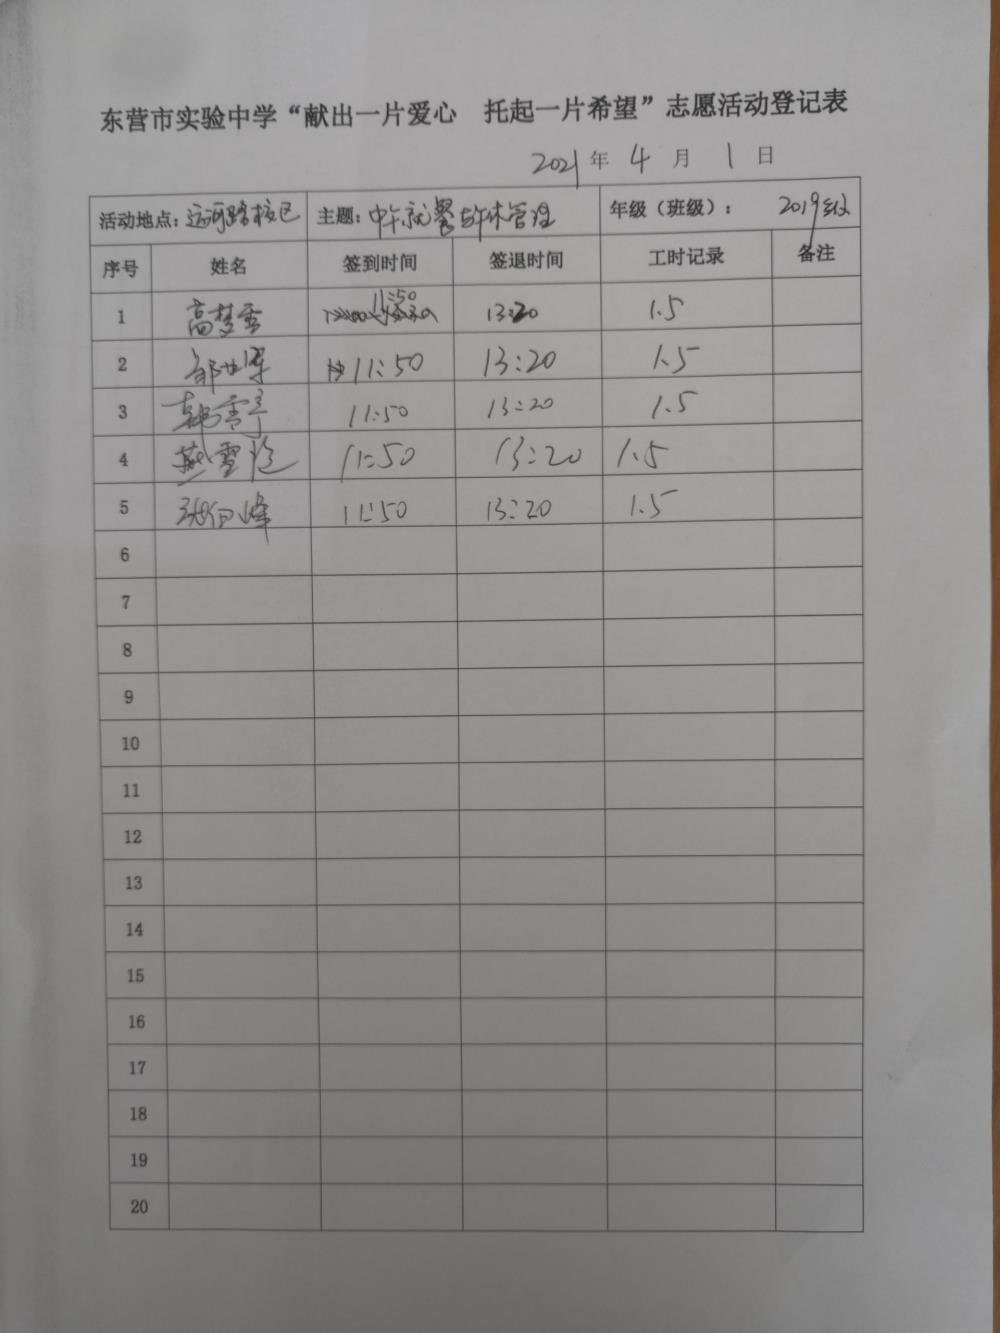 东营市实验中学“献出一片爱心 托起一片希望”志愿活动登记表
2021年 4 月 1 日
活动地点：运河路校区 主题：中午就餐与午休管理 年级（班级）： 2019级
序号 姓名 签到时间 签退时间 工时记录 备注
1 高梦雪 11:50 13:20 1.5
2 11:50 13:20 1.5
3 韩雪 11:50 13:20 1.5
4 燕雪 11:50 13:20 1.5
5 张 峰 11:50 13:20 1.5
6
7
8
9
10
11
12
13
14
15
16
17
18
19
20